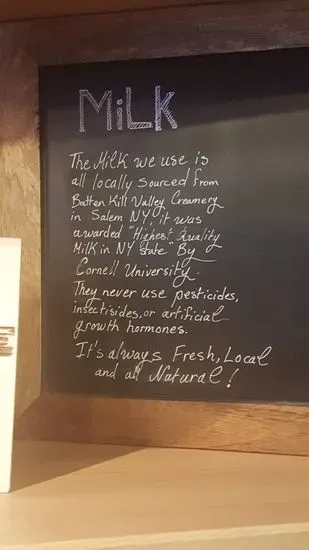 MiLK
The Milk we use is
all locally sourced from
Batten Kill Valley Creamery
in Salem NY, it was
awarded "Highest Quality
Milk in NY State" By
Cornell University.
They never use pesticides,
insectisides, or artificial
growth hormones.
It's always Fresh, Local
and all Natural!